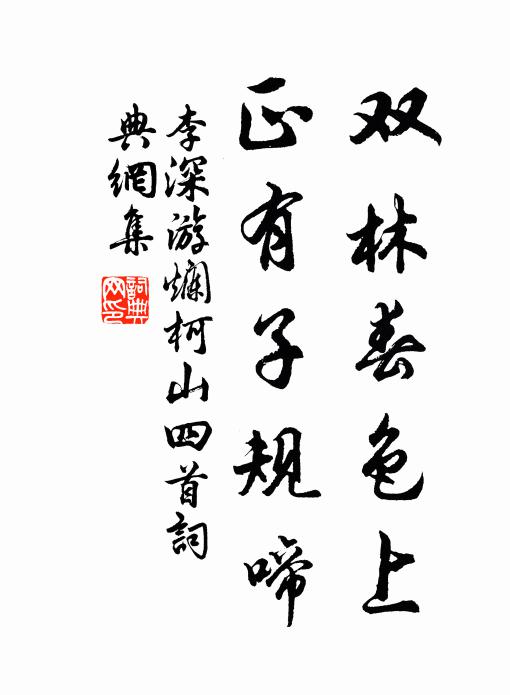 双林春色上
正有子规啼
李深游爛柯山四首詞
典網集
詞典
网印